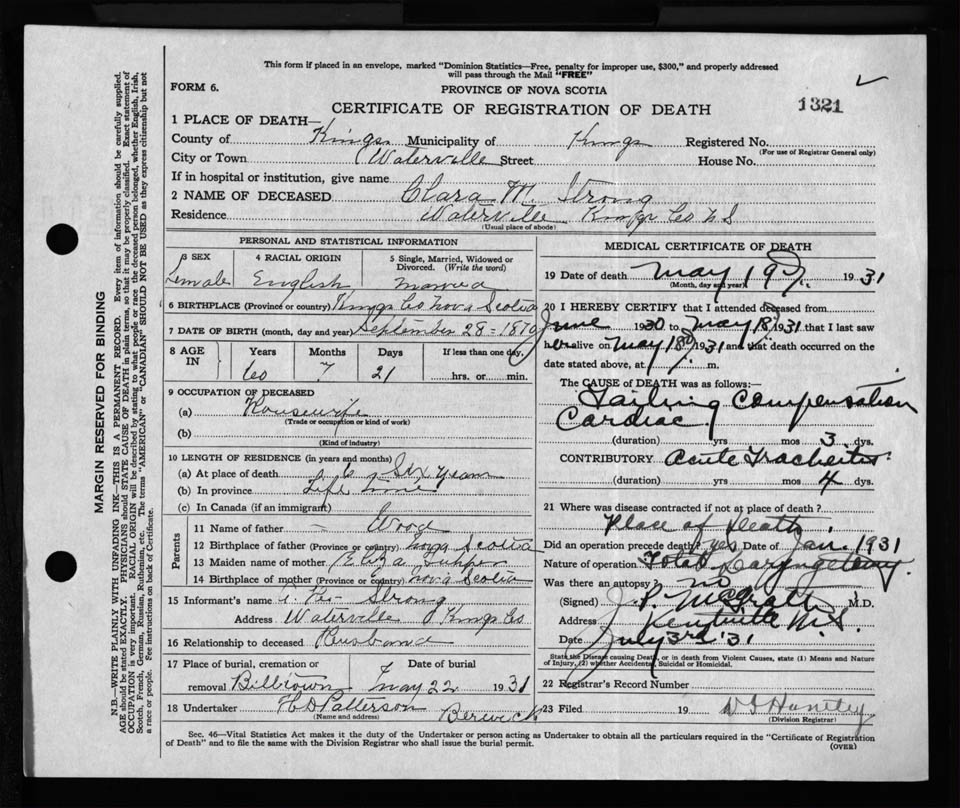 This form if placed in an envelope, marked "Dominion Statistics—Free, penalty for improper use, $300," and properly addressed
will pass through the Mail "FREE"
FORM 6.
PROVINCE OF NOVA SCOTIA
1321
CERTIFICATE OF REGISTRATION OF DEATH
1 PLACE OF DEATH—
County of Kings Municipality of Kings Registered No.
(For use of Registrar General only)
City or Town Waterville Street House No.
If in hospital or institution, give name
2 NAME OF DECEASED Clara M. Strong
Residence Waterville Kings Co N S
(Usual place of abode)
PERSONAL AND STATISTICAL INFORMATION
3 SEX 4 RACIAL ORIGIN 5 Single, Married, Widowed or
Divorced. (Write the word)
Female English Married
6 BIRTHPLACE (Province or country) Kings Co Nova Scotia
7 DATE OF BIRTH (month, day and year) September 28 = 1870
8 AGE IN Years Months Days If less than one day
60 7 21 hrs. or min.
9 OCCUPATION OF DECEASED
(a) Housewife
(Trade or occupation or kind of work)
(b)
(Kind of industry)
10 LENGTH OF RESIDENCE (in years and months)
(a) At place of death 6 Six years
(b) In province Life time
(c) In Canada (if an immigrant)
Parents
11 Name of father
12 Birthplace of father (Province or country) Nova Scotia
13 Maiden name of mother Eliza Tupper
14 Birthplace of mother (Province or country) Nova Scotia
15 Informant's name Strong
Address Waterville Kings Co
16 Relationship to deceased Husband
17 Place of burial, cremation or Date of burial
removal Billtown May 22 1931
18 Undertaker H D Patterson Berwick
(Name and address)
MEDICAL CERTIFICATE OF DEATH
19 Date of death May 19 1931
(Month, day and year)
20 I HEREBY CERTIFY that I attended deceased from
June 1930 to May 18 1931 that I last saw
her alive on May 18 1931 and that death occurred on the
date stated above, at m.
The CAUSE of DEATH was as follows:
Failing Compensation
Cardiac
(duration) yrs mos 3 dys.
CONTRIBUTORY Acute Tracheitis
(duration) yrs mos 4 dys.
21 Where was disease contracted if not at place of death?
Place of Death
Did an operation precede death? yes Date of Jan. 1931
Nature of operation Total Laryngectomy.
Was there an autopsy? no
(Signed) J. P. McGrath M.D.
Address Kentville N.S.
Date July 3rd '31
State the Disease causing Death, or in death from Violent Causes, state (1) Means and Nature
of Injury, (2) whether Accidental, Suicidal or Homicidal.
22 Registrar's Record Number
23 Filed 19 Huntley
(Division Registrar)
Sec. 46—Vital Statistics Act makes it the duty of the Undertaker or person acting as Undertaker to obtain all the particulars required in the "Certificate of Registration
of Death" and to file the same with the Division Registrar who shall issue the burial permit.
(OVER)
MARGIN RESERVED FOR BINDING
N.B.—WRITE PLAINLY WITH UNFADING INK—THIS IS A PERMANENT RECORD. Every item of information should be carefully supplied.
AGE should be stated EXACTLY. PHYSICIANS should STATE CAUSE OF DEATH in plain terms, so that it may be properly classified. Exact statement of
OCCUPATION is very important. RACIAL ORIGIN will be described by stating to what people or race the deceased person belonged, whether English, Irish,
Scotch, French, German, Russian, Ruthenian, etc. The terms "AMERICAN" or "CANADIAN" SHOULD NOT BE USED as they express citizenship but not
a race or people. Fee instructions on back of Certificate.